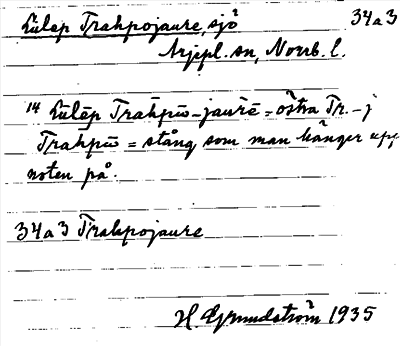 Lulep Trakpojaure, sjö 34a3
Arjepl. sn, Norrb. l.
14 Lūlēp Trăkpō-jaurē = östra Tr.-j
Trăkpō = stång som man hänger upp
noten på.
34a3 Trakpojaure
H Grundström 1935